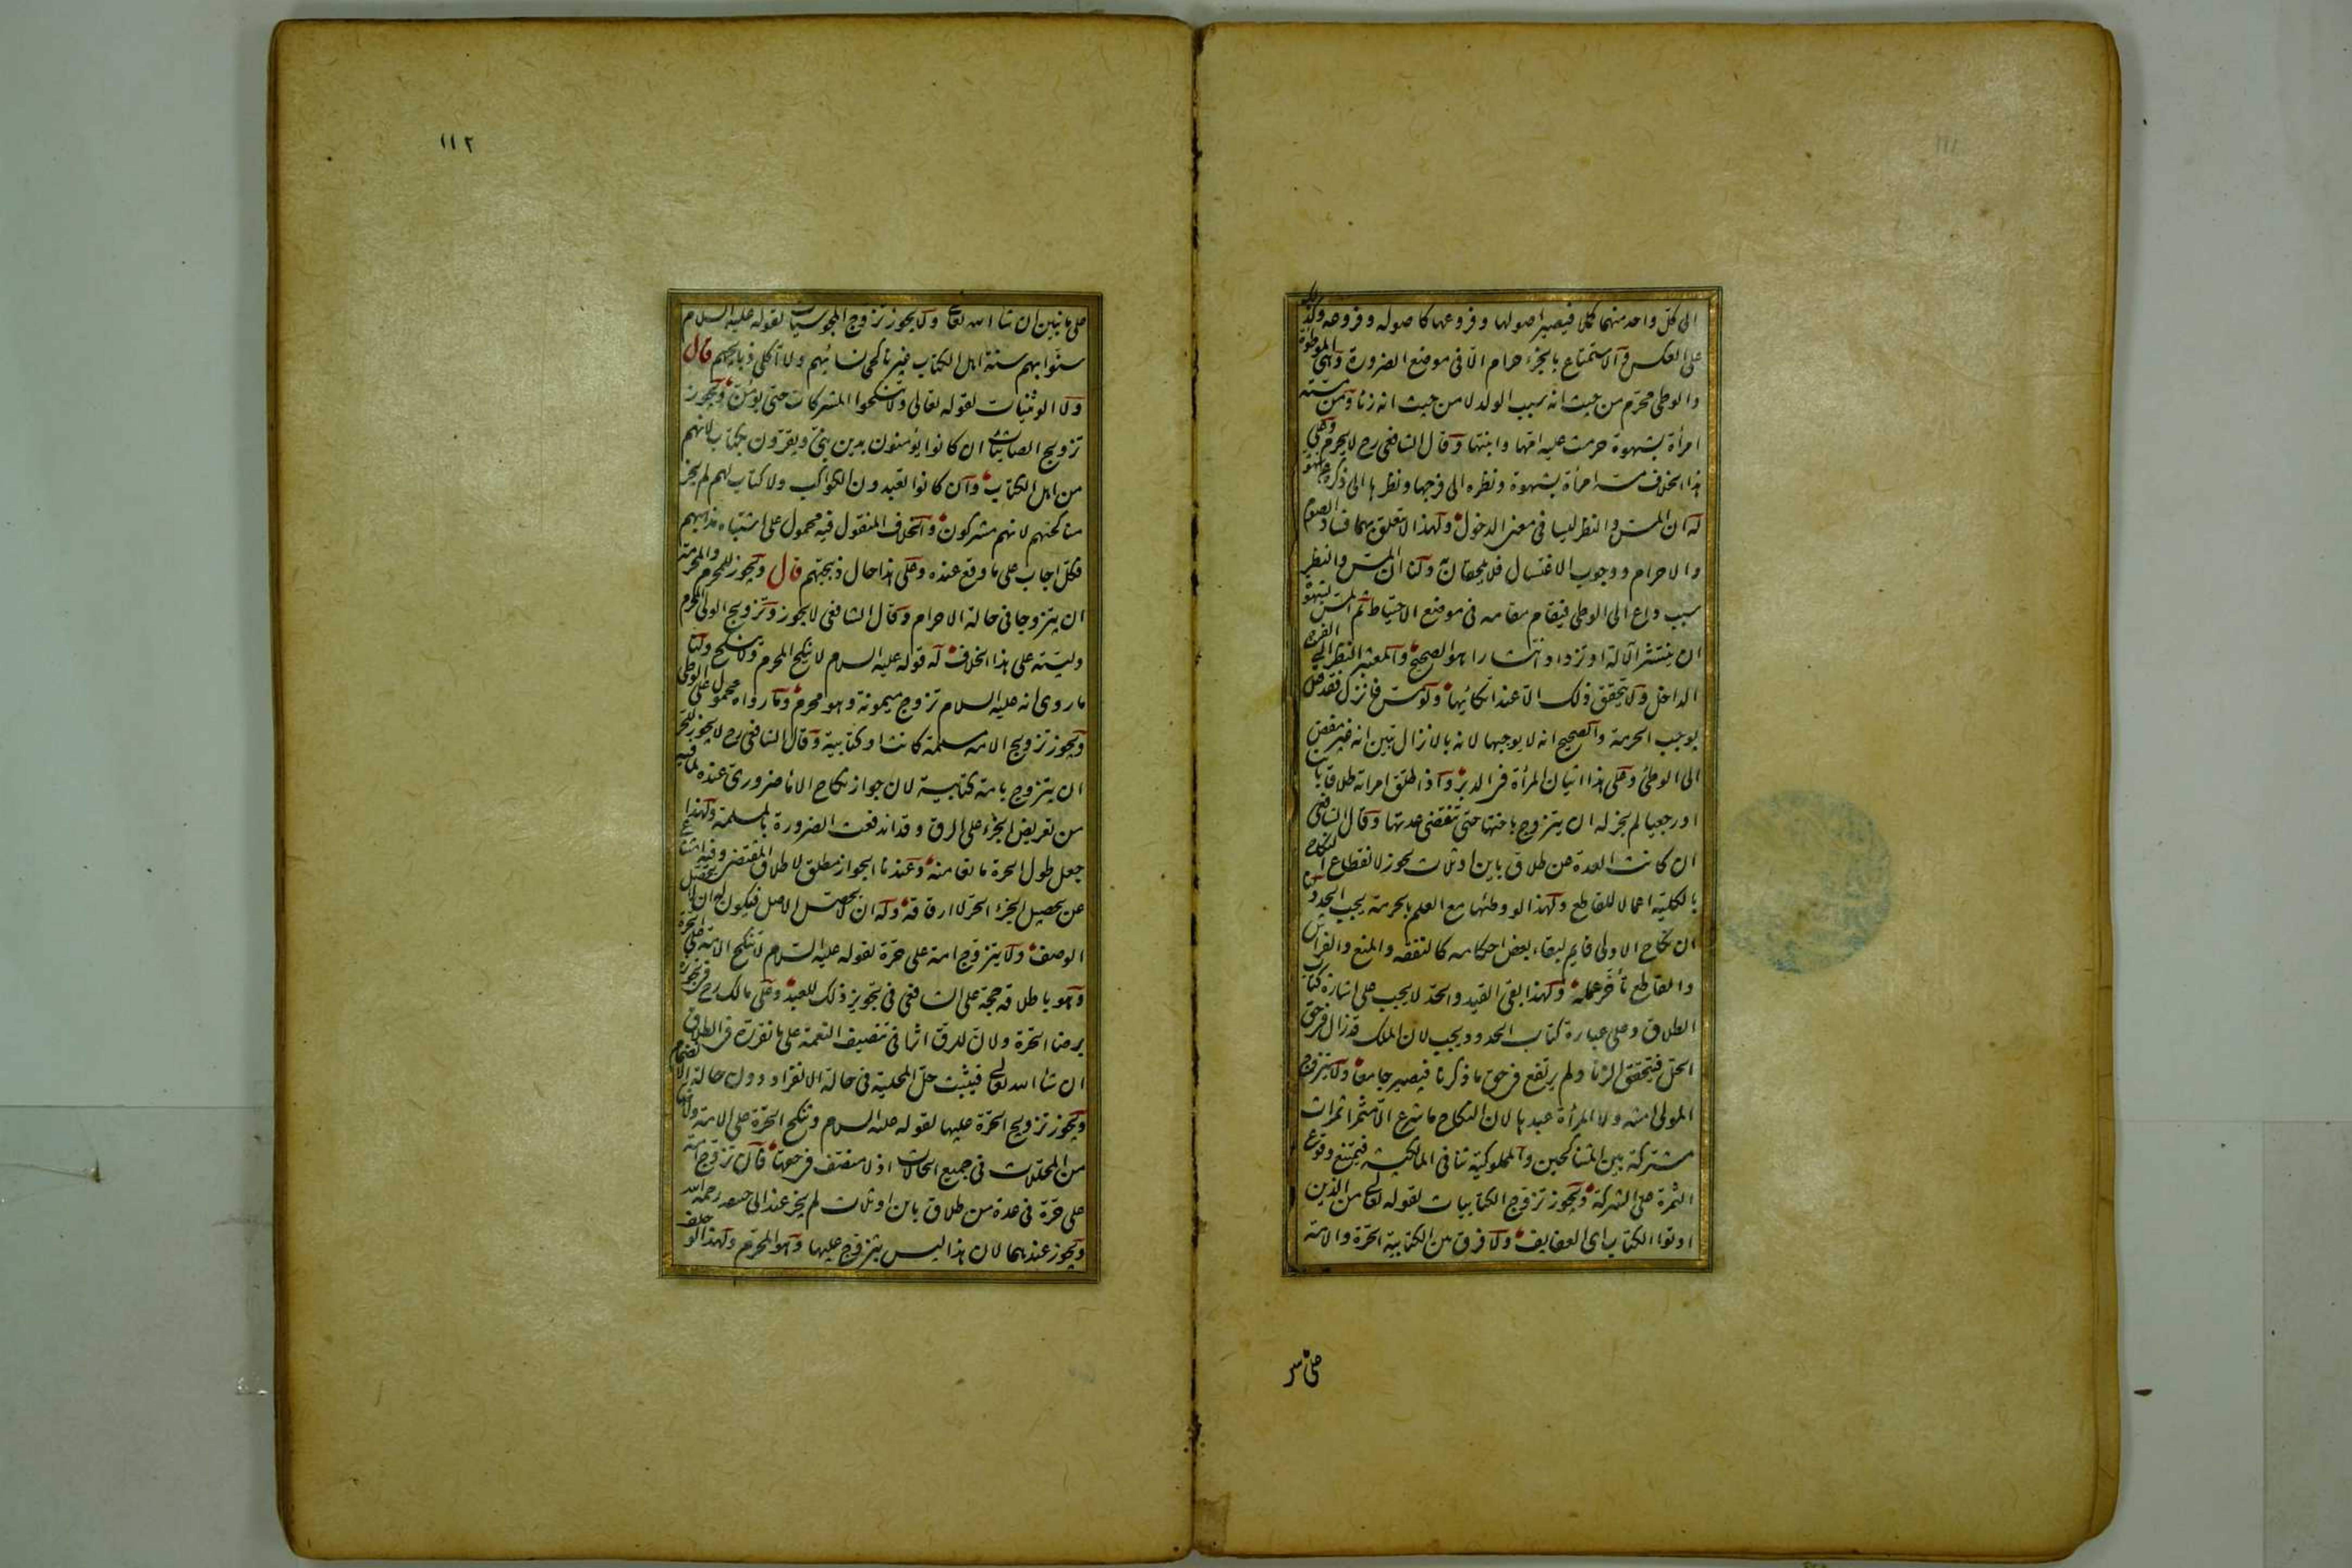 الى كل واحد منهما كملا فيصير اصولها وفروعها كاصوله وفروعه وكذلك
على العكس والاستمتاع بالجزء حرام الا فى موضع الضرورة وهى الموطوة
والوطى محرم من حيث انه سبب الولد لا من حيث انه زنا ومن مسته
امرأة بشهوة حرمت عليه امها وابنتها وقال الشافعى رح لا يحرم وعلى
هذا الخلاف مسه امرأة بشهوة ونظره الى فرجها ونظرها الى ذكره عن شهوة
له ان المس والنظر ليسا فى معنى الدخول ولهذا لا يتعلق بهما فساد الصوم
والاحرام ووجوب الاغتسال فلا يلحقان به ولنا ان المس والنظر
سبب داع الى الوطى فيقام مقامه فى موضع الاحتياط ثم المس بشهوة
ان ينتشر الآلة او تزداد انتشارا هو الصحيح والمعتبر النظر الى الفرج
الداخل ولا يتحقق ذلك الا عند اتكائها ولو مس فانزل فقد قيل
يوجب الحرمة والصحيح انه لا يوجبها لانه بالانزال تبين انه غير مفض
الى الوطئ وعلى هذا اتيان المرأة فى الدبر واذا طلق امراته طلاقا باينا
او رجعيا لم يجز له ان يتزوج باختها حتى تنقضى عدتها وقال الشافعى
ان كانت العدة عن طلاق باين او ثلاث يجوز لانقطاع النكاح
بالكلية اعمالا للقاطع ولهذا لو وطئها مع العلم بالحرمة يجب الحد ولنا
ان نكاح الاولى قايم لبقاء بعض احكامه كالنفقة والمنع والفراش
والقاطع تأخر عمله ولهذا بقى القيد والحد لا يجب على اشارة كتاب
الطلاق وعلى عبارة كتاب الحدود يجب لان الملك قد زال فى حق
الحل فيتحقق الزنا ولم يرتفع فى حق ما ذكرنا فيصير جامعا ولا يتزوج
المولى امته ولا المرأة عبدها لان النكاح ما شرع الا مثمرا ثمرات
مشتركة بين المتناكحين والمملوكية تنافى المالكية فيمتنع وقوع
الثمرة على الشركة ويجوز تزوج الكتابيات لقوله تعالى من الذين
اوتوا الكتاب اى العفايف ولا فرق بين الكتابية الحرة والامة
على ما نبين
١١٢
على ما نبين ان شا الله تعالى ولا يجوز تزوج المجوسيات لقوله عليه السلام
سنوا بهم سنة اهل الكتاب غير ناكحى نسائهم ولا آكلى ذبايحهم قال
ولا الوثنيات لقوله تعالى ولا تنكحوا المشركات حتى يؤمن ويجوز
تزويج الصابيات ان كانوا يؤمنون بدين نبى ويقرون بكتاب لانهم
من اهل الكتاب وان كانوا يعبدون الكواكب ولا كتاب لهم لم يجز
مناكحتهم لانهم مشركون والخلاف المنقول فيه محمول على اشتباه مذهبهم
فكل اجاب على ما وقع عنده وعلى هذا حال ذبيحتهم قال ويجوز للمحرم والمحرمة
ان يتزوجا فى حالة الاحرام وقال الشافعى لا يجوز وتزويج الولى المحرم
وليته على هذا الخلاف له قوله عليه السلام لا ينكح المحرم ولا ينكح ولنا
ما روى انه عليه السلام تزوج ميمونة وهو محرم وما رواه محمول على الوطى
ويجوز تزويج الامة مسلمة كانت او كتابية وقال الشافعى رح لا يجوز للحر
ان يتزوج بامة كتابية لان جواز نكاح الاما ضرورى عنده لما فيه
من تعريض الجزء على الرق وقد اندفعت الضرورة بالمسلمة ولهذا
جعل طول الحرة مانعا منه وعندنا الجواز مطلق لاطلاق المقتضى وفيه امتناع
عن تحصيل الجزء الحر لا ارقاقه وله ان لا يحصل الاصل فيكون له ان لا يحصل
الوصف ولا يتزوج امة على حرة لقوله عليه السلام لا تنكح الامة على الحرة
وهو باطلاقه حجة على الشافعى فى تجويز ذلك للعبد وعلى مالك رح فى تجويزه
برضا الحرة ولان للرق اثرا فى تنصيف النعمة على ما نقرره فى الطلاق
ان شاء الله تعالى فيثبت حل المحلية فى حالة الانفراد دون حالة الانضمام
ويجوز تزويج الحرة عليها لقوله عليه السلام وتنكح الحرة على الامة ولانها
من المحللات فى جميع الحالات اذ لا منصف فى حقها قال تزوج امة
على حرة فى عدة من طلاق باين او ثلاث لم يجز عند ابى حنيفه رحمه الله
ويجوز عندهما لان هذا ليس بتزوج عليها وهو المحرم ولهذا لو حلف